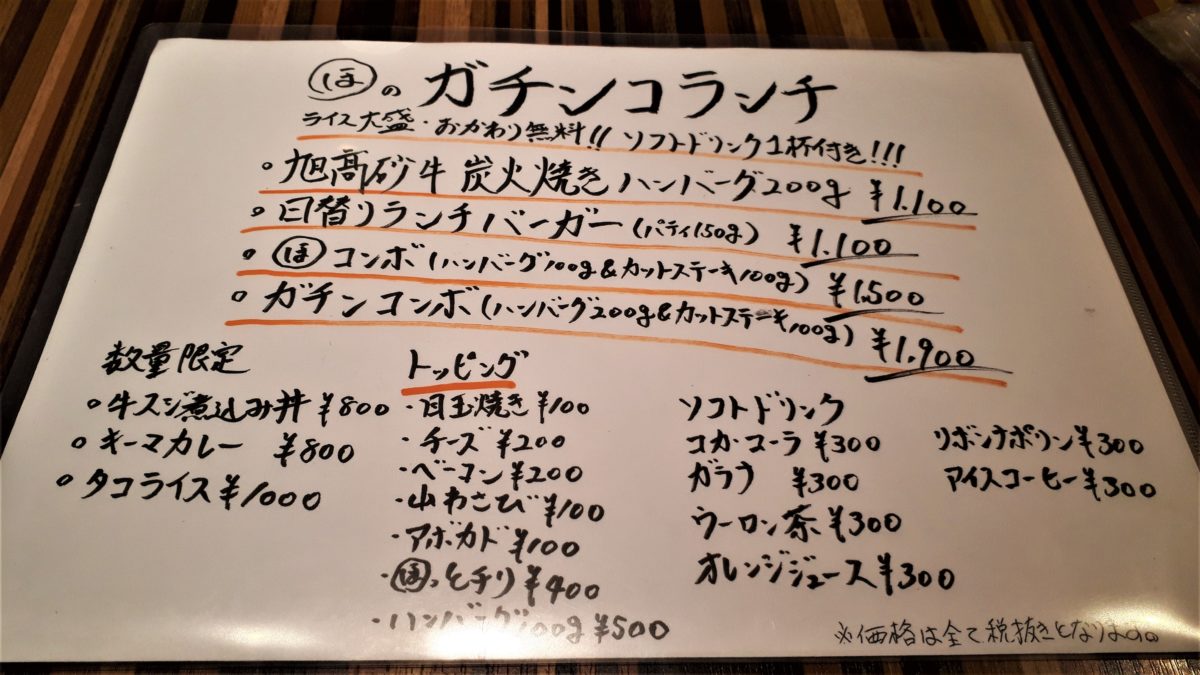 ほのガチンコランチ
ライス大盛・おかわり無料!! ソフトドリンク1杯付き!!!
・旭高砂牛 炭火焼きハンバーグ200g ¥1.100
・日替りランチバーガー(パティ150g) ¥1.100
・ほコンボ(ハンバーグ100g&カットステーキ100g) ¥1.500
・ガチンコンボ(ハンバーグ200g&カットステーキ100g) ¥1.900
数量限定
・牛スジ煮込み丼 ¥800
・キーマカレー ¥800
・タコライス ¥1000
トッピング
・目玉焼き ¥100
・チーズ ¥200
・ベーコン ¥200
・山わさび ¥100
・アボカド ¥100
・ほっとチリ ¥400
・ハンバーグ100g ¥500
ソフトドリンク
コカ・コーラ ¥300
ガラナ ¥300
ウーロン茶 ¥300
オレンジジュース ¥300
リボンナポリン ¥300
アイスコーヒー ¥300
※価格は全て税抜きとなります。